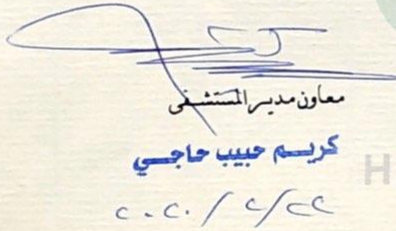 معاون مدير المستشفى
كريم حبيب حاجي
٢٠٢٠/٢/٢٣
H